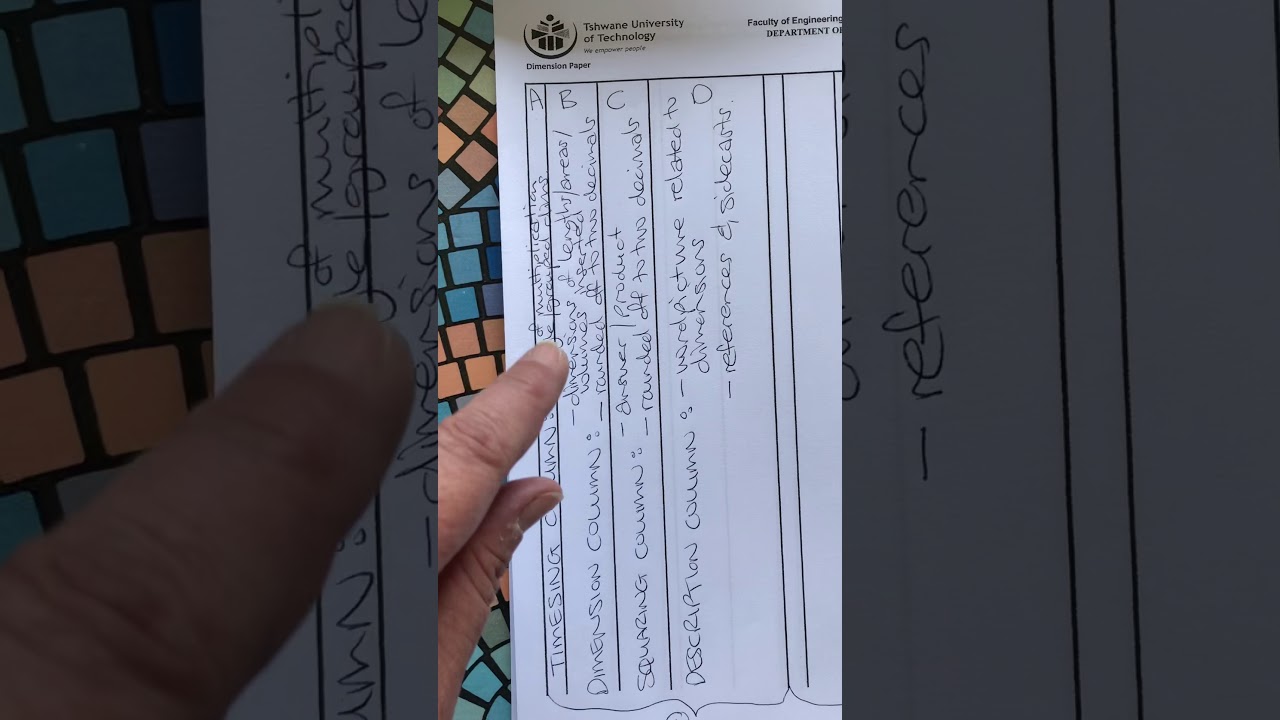 Tshwane University
of Technology
We empower people
Dimension Paper
Faculty of Engineering
DEPARTMENT OF
A
B
C
D
TIMESING COLUMN:
of multiplication
grouped dims
DIMENSION COLUMN:
- dimensions of lengths/areas/
volumes inserted
- rounded off to two decimals
SQUARING COLUMN:
- answer/product
- rounded off to two decimals
DESCRIPTION COLUMN:
- wordpicture related to
dimensions
- references & sidecasts.